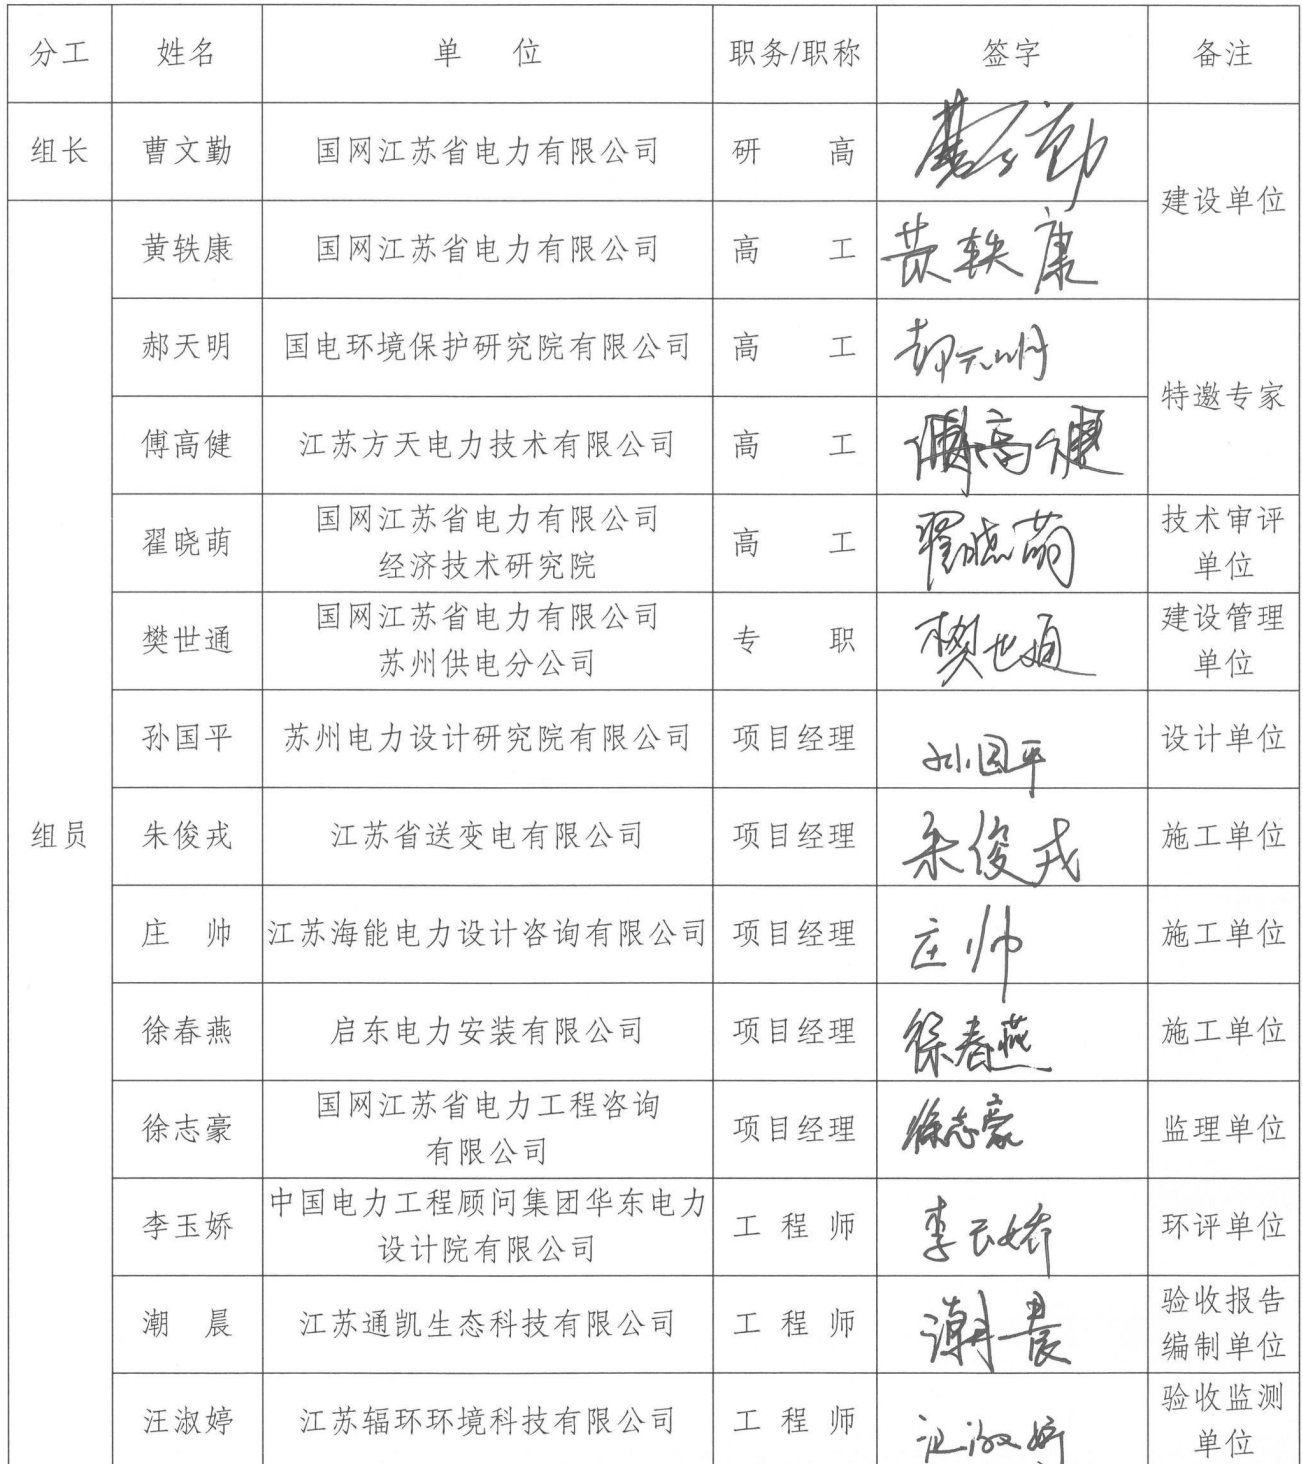 分工 姓名 单 位 职务/职称 签字 备注
组长 曹文勤 国网江苏省电力有限公司 研 高 曹文勤 建设单位
组员 黄轶康 国网江苏省电力有限公司 高 工 黄轶康
郝天明 国电环境保护研究院有限公司 高 工 郝天明 特邀专家
傅高健 江苏方天电力技术有限公司 高 工 傅高健
翟晓萌 国网江苏省电力有限公司 高 工 翟晓萌 技术审评
经济技术研究院 单位
樊世通 国网江苏省电力有限公司 专 职 樊世通 建设管理
苏州供电分公司 单位
孙国平 苏州电力设计研究院有限公司 项目经理 孙国平 设计单位
朱俊戎 江苏省送变电有限公司 项目经理 朱俊戎 施工单位
庄 帅 江苏海能电力设计咨询有限公司 项目经理 庄帅 施工单位
徐春燕 启东电力安装有限公司 项目经理 徐春燕 施工单位
徐志豪 国网江苏省电力工程咨询 项目经理 徐志豪 监理单位
有限公司
李玉娇 中国电力工程顾问集团华东电力 工 程 师 李玉娇 环评单位
设计院有限公司
潮 晨 江苏通凯生态科技有限公司 工 程 师 潮晨 验收报告
编制单位
汪淑婷 江苏辐环环境科技有限公司 工 程 师 汪淑婷 验收监测
单位